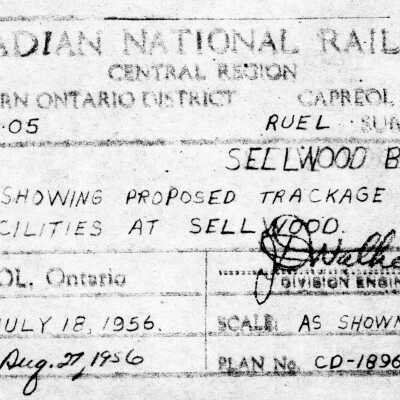 ADIAN NATIONAL RAIL
CENTRAL REGION
RN ONTARIO DISTRICT CAPREOL
05 RUEL SUB
SELLWOOD B
SHOWING PROPOSED TRACKAGE
CILITIES AT SELLWOOD.
OL, Ontario
DIVISION ENGIN
JULY 18, 1956. SCALE: AS SHOWN
Aug. 27, 1956 PLAN No. CD-1896